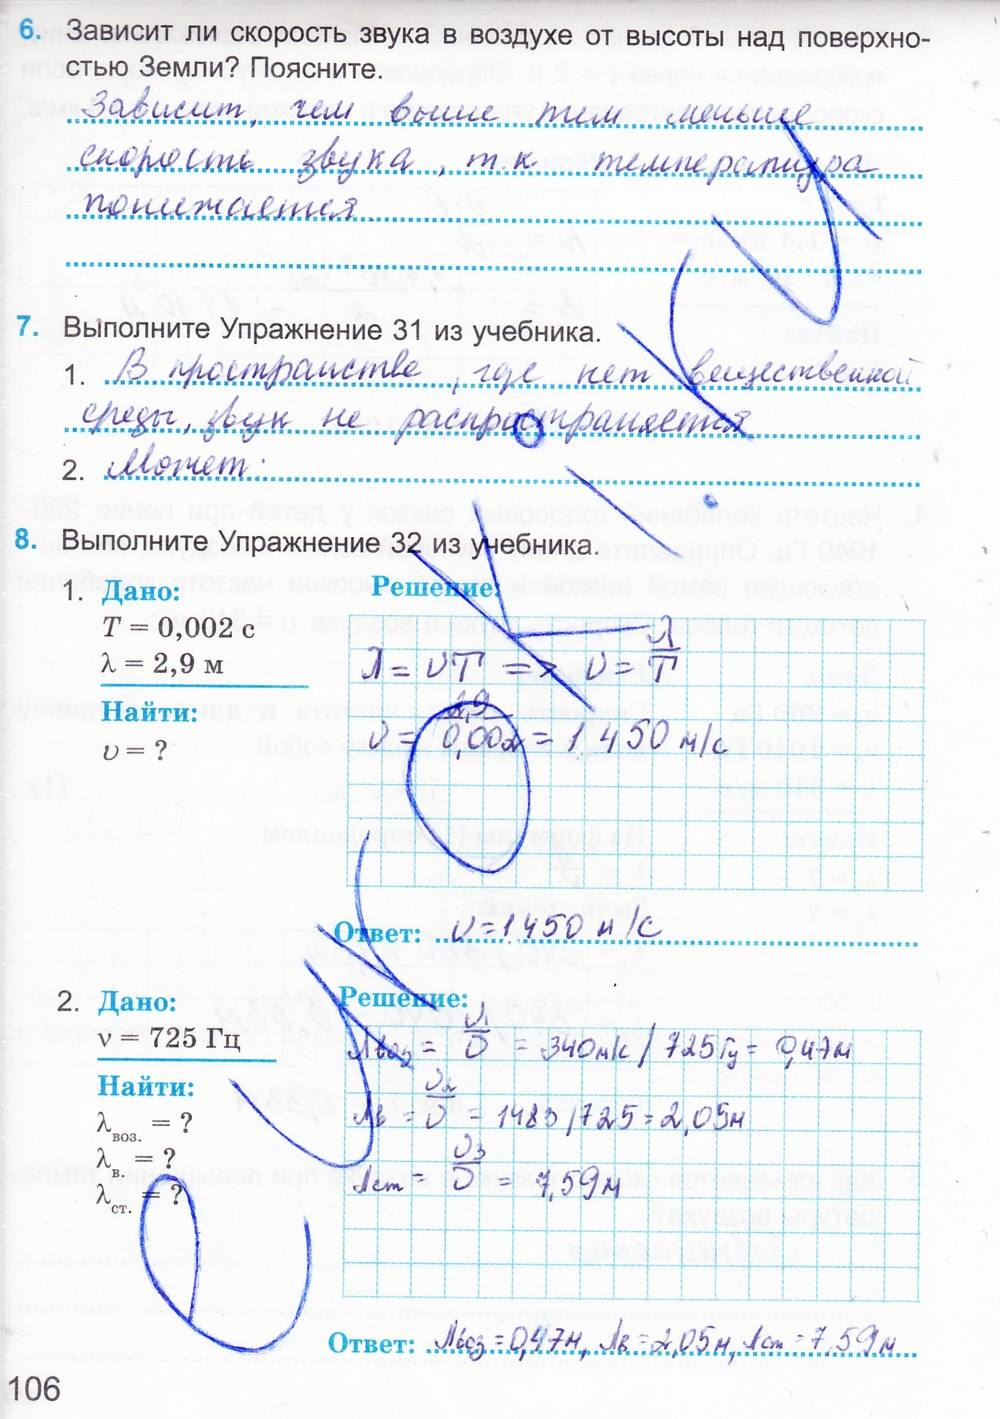 6. Зависит ли скорость звука в воздухе от высоты над поверхно-
стью Земли? Поясните.
Зависит, чем выше тем меньше
скорость звука, т.к. температура
понижается
7. Выполните Упражнение 31 из учебника.
1. В пространстве, где нет вещественной
среды, звук не распространяется
2. Может.
8. Выполните Упражнение 32 из учебника.
1. Дано:
T = 0,002 с
λ = 2,9 м
Найти:
υ = ?
Решение:
λ = υT => υ = λ/T
υ = 2,9/0,002 = 1450 м/с
Ответ: υ = 1450 м/с
2. Дано:
ν = 725 Гц
Найти:
λвоз. = ?
λв. = ?
λст. = ?
Решение:
λвоз = υ1/υ = 340м/с / 725Гц = 0,47м
λв = υ2/υ = 1483/725 = 2,05м
λст = υ3/υ = 7,59м
Ответ: λвоз = 0,47м, λв = 2,05м, λст = 7,59м
106